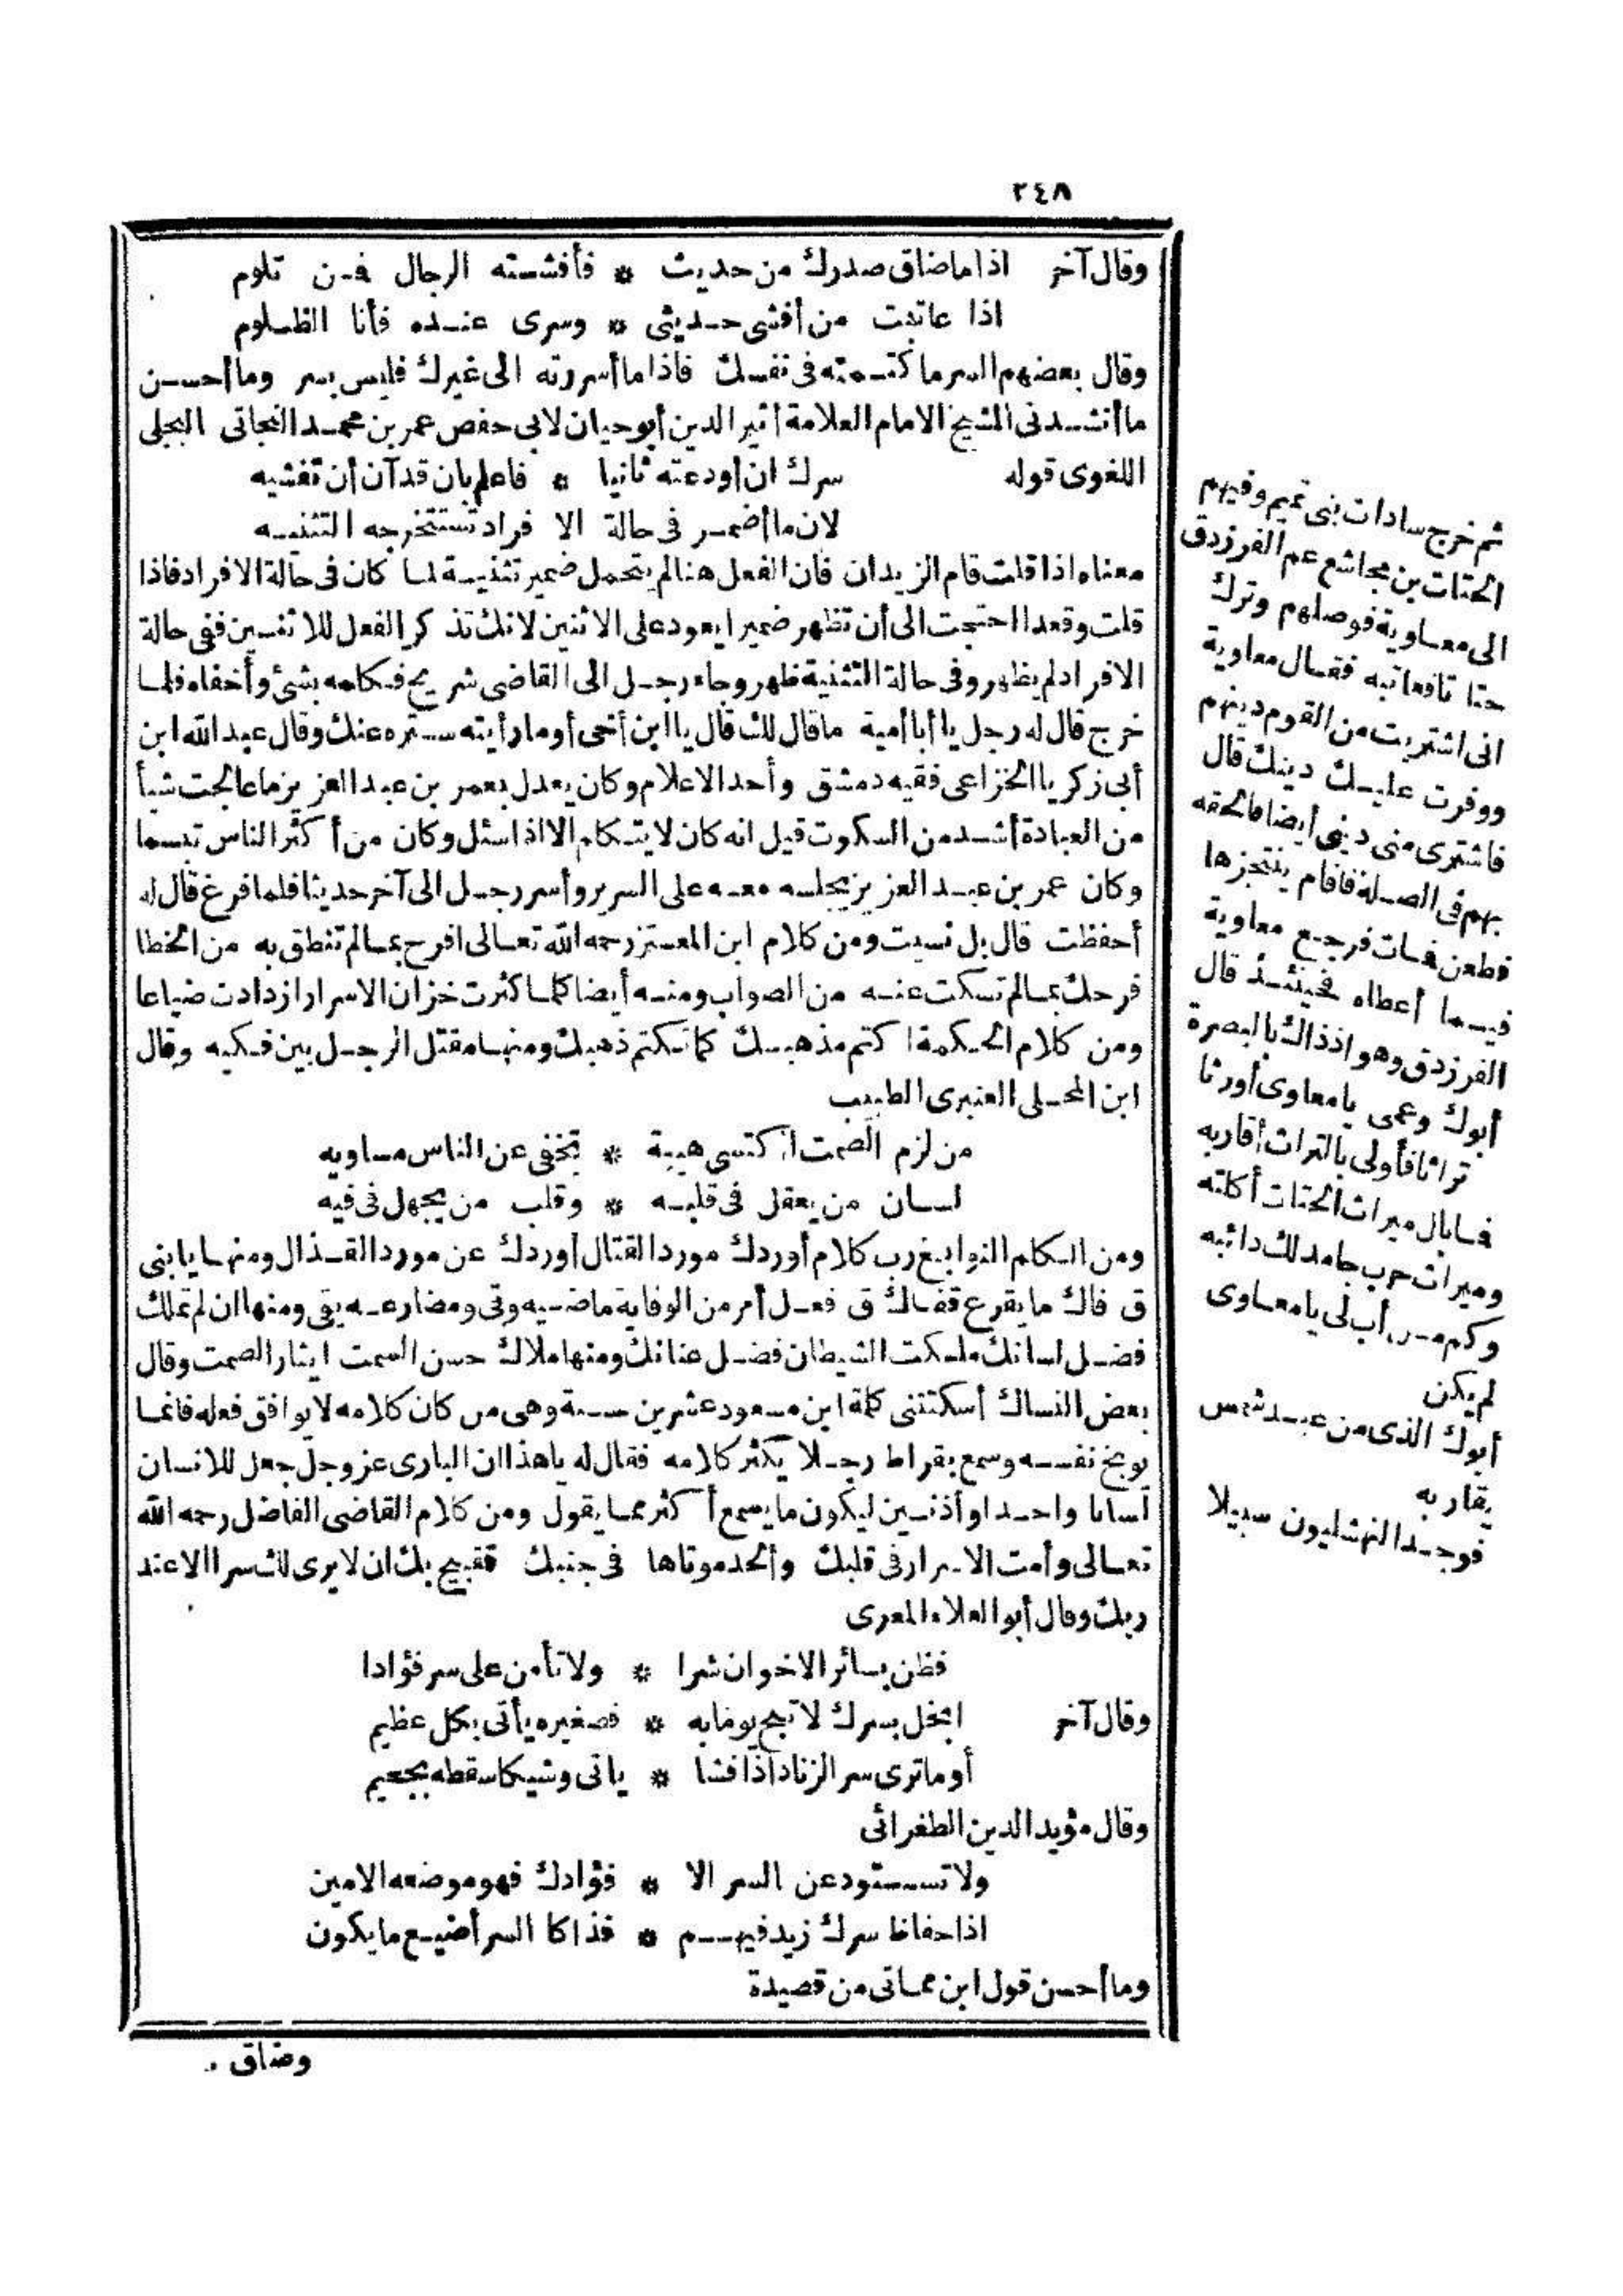 ٢٤٨
وقال آخر اذا ما ضاق صدرك من حديث * فأفشته الرجال فمن تلوم
اذا عاتبت من أفشى حديثى * وسرى عنده فأنا الظلوم
وقال بعضهم السر ما كتمته فى نفسك فاذا ما أسررته الى غيرك فليس بسر وما أحسن
ما أنشدنى الشيخ الامام العلامة أثير الدين أبو حيان لابى حفص عمر بن محمد النجاتى البجلى
اللغوى قوله سرك ان أودعته ثانيا * فاعلم بان قد آن أن تفشيه
لان ما أضمر فى حالة الا فراد تستخرجه التثنيه
معناه اذا قلت قام الزيدان فان الفعل هنا لم يتحمل ضمير تثنية لما كان فى حالة الافراد فاذا
قلت وقعدا احتجت الى أن تظهر ضميرا يعود على الاثنين لانك تذكر الفعل للاثنين ففى حالة
الافراد لم يظهر وفى حالة التثنية ظهر وجاء رجل الى القاضى شريح فكلمه بشئ وأخفاه فلما
خرج قال له رجل يا أبا أمية ما قال لك قال يا ابن أخى أو ما رأيته ستره عنك وقال عبد الله ابن
أبى زكريا الخزاعى فقيه دمشق وأحد الاعلام وكان يعدل بعمر بن عبد العزيز ما عالجت شيأ
من العبادة أشد من السكوت قيل انه كان لا يتكلم الا اذا سئل وكان من أكثر الناس تبسما
وكان عمر بن عبد العزيز يجلسه معه على السرير وأسر رجل الى آخر حديثا فلما فرغ قال له
أحفظت قال بل نسيت ومن كلام ابن المعتز رحمه الله تعالى افرح بما لم تنطق به من الخطا
فرحك بما لم تسكت عنه من الصواب ومنه أيضا كلما كثرت خزان الاسرار ازدادت ضياعا
ومن كلام الحكمة اكتم مذهبك كما تكتم ذهبك ومنها مقتل الرجل بين فكيه وقال
ابن المحلى العنبرى الطبيب
من لزم الصمت اكتسى هيبة * تخفى عن الناس مساويه
لسان من يعقل فى قلبه * وقلب من يجهل فى فيه
ومن الكلم النوابغ رب كلام أوردك مورد القتال أوردك عن مورد القذال ومنها يا بنى
ق فاك ما يقرع قفاك ق فعل أمر من الوقاية ماضيه وقى ومضارعه يقى ومنها ان لم تملك
فضل لسانك ملكت الشيطان فضل عنانك ومنها ملاك حسن السمت ايثار الصمت وقال
بعض النساك أسكتتنى كلمة ابن مسعود عشرين سنة وهى من كان كلامه لا يوافق فعله فانما
يوبخ نفسه وسمع بقراط رجلا يكثر كلامه فقال له يا هذا ان البارى عز وجل جعل للانسان
لسانا واحدا وأذنين ليكون ما يسمع أكثر مما يقول ومن كلام القاضى الفاضل رحمه الله
تعالى وأمت الاسرار فى قلبك وألحد موتاها فى جنبك فقبيح بك ان لا يرى لك سرا الا عند
ربك وقال أبو العلاء المعرى
فظن بسائر الاخوان شرا * ولا تأمن على سر فؤادا
وقال آخر ابخل بسرك لا تبح يوما به * فصغيره يأتى بكل عظيم
أو ما ترى سر الزناد اذا فشا * ياتى وشيكا سقطه بجحيم
وقال مؤيد الدين الطغرائى
ولا تستودعن السر الا * فؤادك فهو موضعه الامين
اذا حفاظ سرك زيد فيهم * فذاكا السر أضيع ما يكون
وما أحسن قول ابن مماتى من قصيدة
وضاق
ثم خرج سادات بنى تميم وفيهم
الحتات بن مجاشع عم الفرزدق
الى معاوية فوصلهم وترك
حتا تا فعاتبه فقال معاوية
انى اشتريت من القوم دينهم
ووفرت عليك دينك قال
فاشترى منى دينى أيضا فالحقه
بهم فى الصلة فاقام ينتجزها
فطعن فمات فرجع معاوية
فيما أعطاه فحينئذ قال
الفرزدق وهو اذ ذاك بالبصرة
أبوك وعمى يا معاوى أورثا
تراثا فأولى بالتراث أقاربه
فما بال ميراث الحتات أكلته
وميراث حرب جامد لك ذائبه
وكم من أب لى يا معاوى
لم يكن
أبوك الذى من عبد شمس
يقاربه
فوجدا النهشليون سبيلا